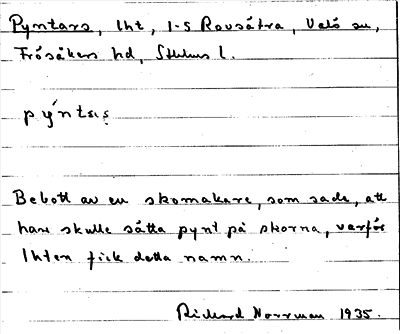 Pyntars, lht, 1-5 Rovsätra, Vetö sn,
Frösåkers hd, Sthlms l.
pýntaṣ
Bebott av en skomakare, som sade, att
han skulle sätta pynt på skorna, varför
lhten fick detta namn.
Richard Norrman 1935.